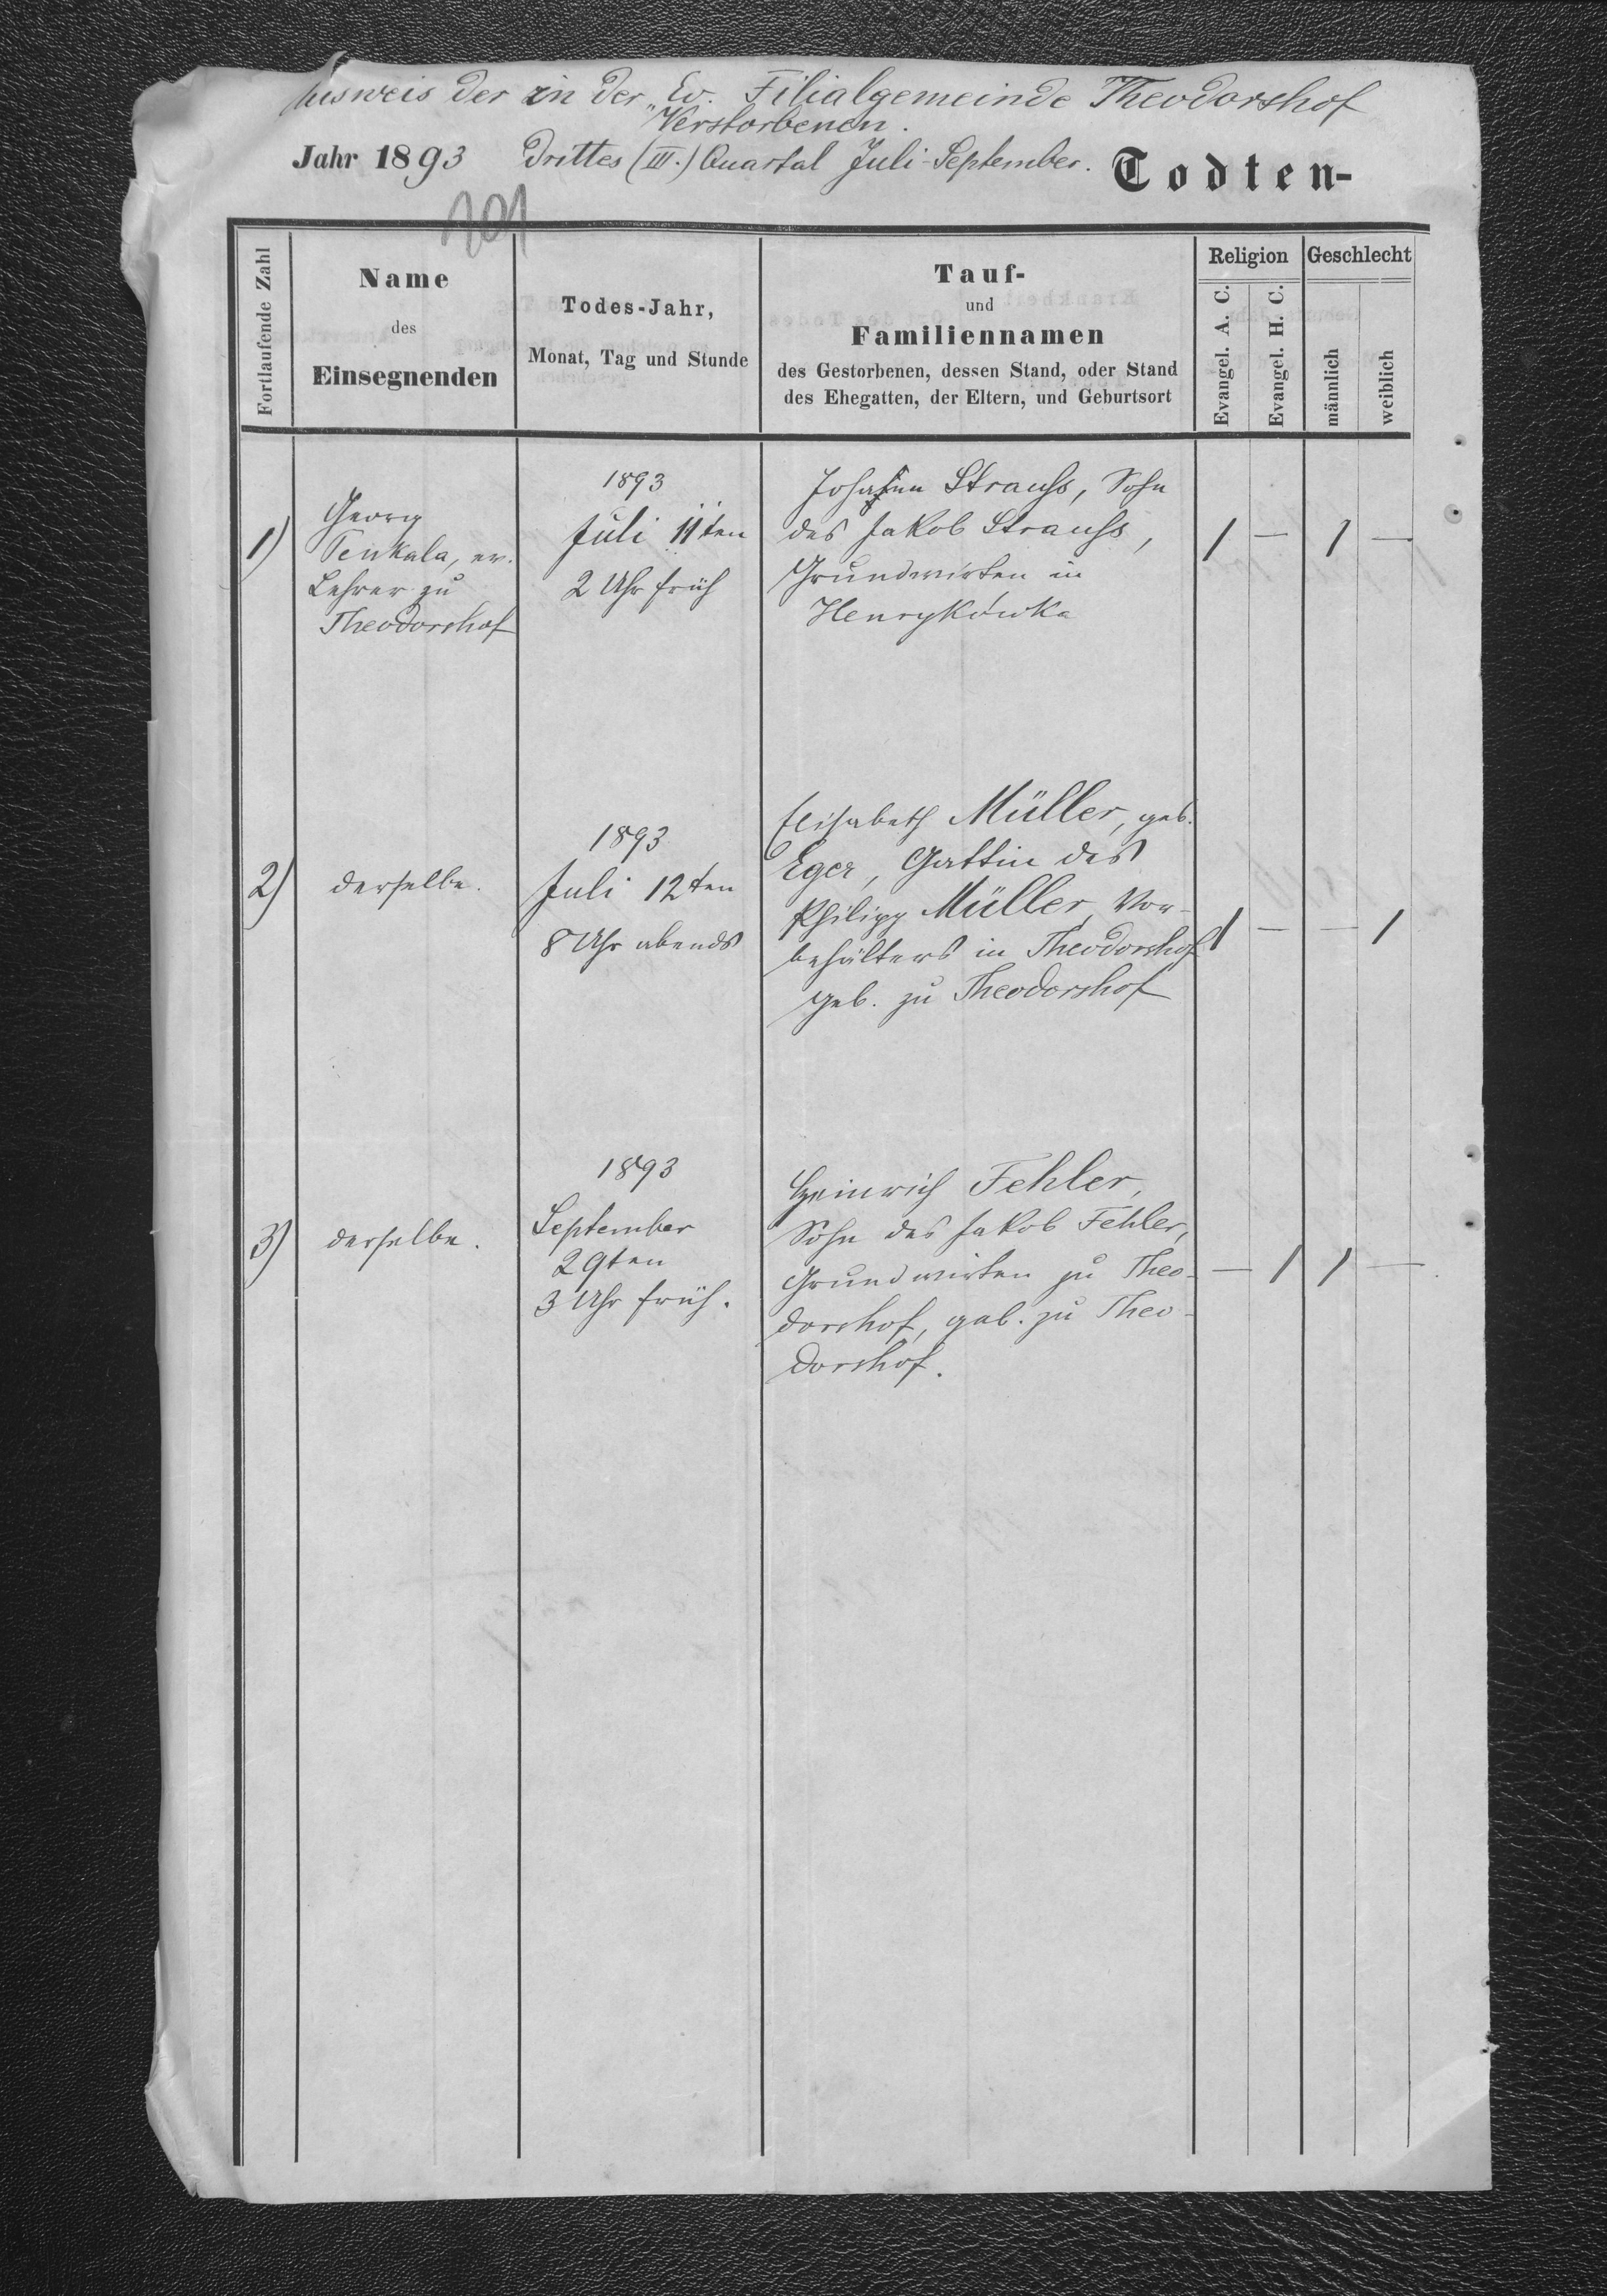 Ausweis der in der Ev. Filialgemeinde Theodorshof
Verstorbenen.
Jahr 1893 Drittes (III.) Quartal Juli-September. Todten-
201
Fortlaufende Zahl
Name
des
Einsegnenden
Todes-Jahr,
Monat, Tag und Stunde
Tauf-
und
Familiennamen
des Gestorbenen, dessen Stand, oder Stand
des Ehegatten, der Eltern, und Geburtsort
Religion
Evangel. A. C.
Evangel. H. C.
Geschlecht
männlich
weiblich
1)
Georg
Tenkala, ev.
Lehrer zu
Theodorshof
1893
Juli 11ten
2 Uhr früh
Johann Strauss, Sohn
des Jakob Strauss,
Grundwirten in
Henrykówka
1 — 1 —
2)
derselbe.
1893
Juli 12ten
8 Uhr abends
Elisabeth Müller, geb.
Eger, Gattin des
Philipp Müller, Vor-
behälters in Theodorshof
geb. zu Theodorshof
1 — — 1
3)
derselbe.
1893
September
29ten
3 Uhr früh.
Heinrich Fehler,
Sohn des Jakob Fehler,
Grundwirten zu Theo-
dorshof, geb. zu Theo-
dorshof.
— 1 1 —